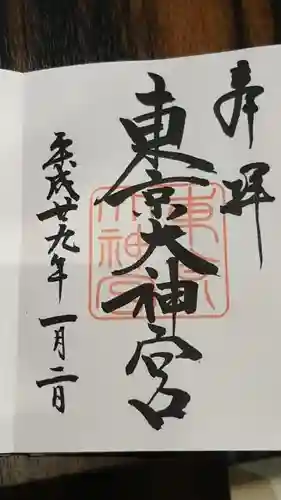 奉拝
東京大神宮
平成廿九年一月二日
東京大神宮